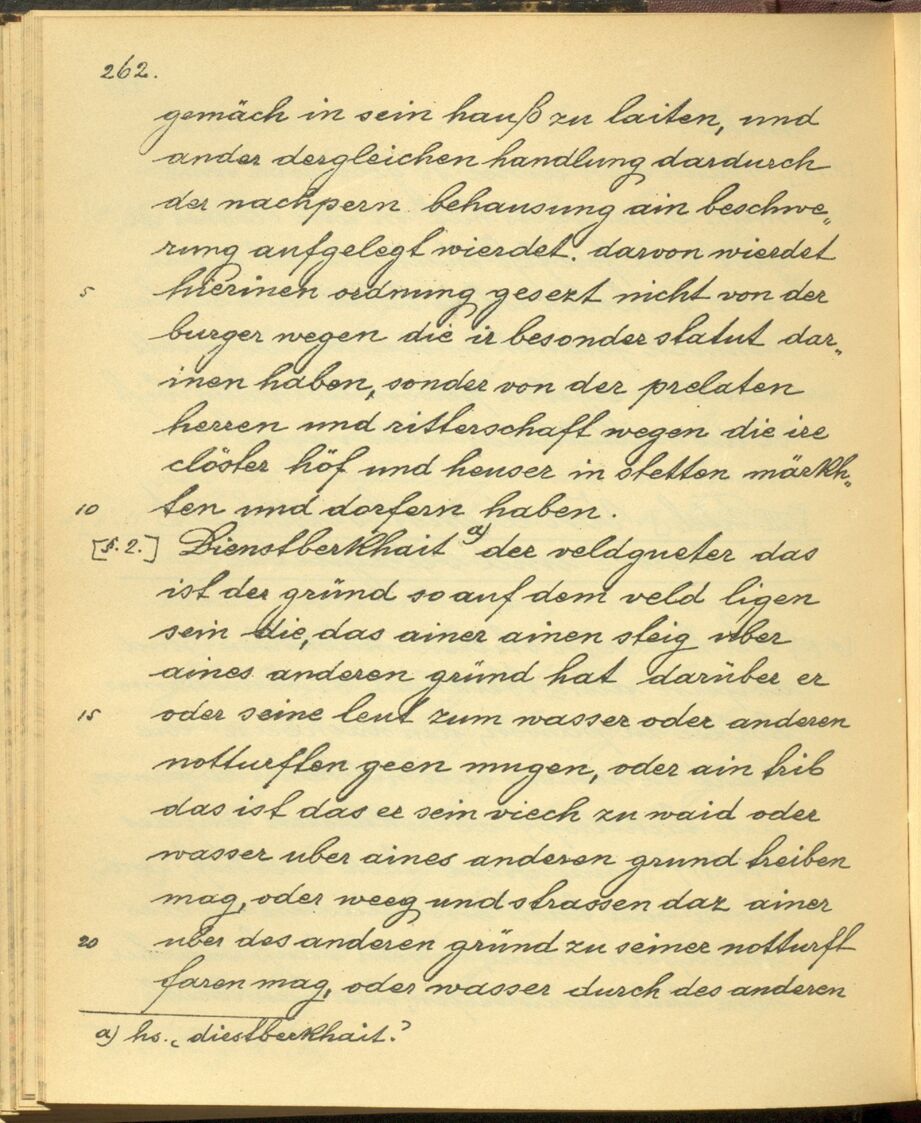 262.
gemäch in sein hauß zu laiten, und
ander dergleichen handlung dardurch
der nachpern behausung ain beschwe„
rung aufgelegt wierdet. darvon wierdet
5 hierinen ordnung gesezt nicht von der
burger wegen die ir besonder statut dar„
inen haben, sonder von der prelaten
herren und ritterschaft wegen die ire
clöster höf und heuser in stetten märkh„
10 ten und dorfern haben.
[§. 2.] Dienstberkhait a) der veldgueter das
ist der gründ so auf dem veld ligen
sein die, das ainer ainen steig uber
aines anderen gründ hat darüber er
15 oder seine leut zum wasser oder anderen
notturften geen mugen, oder ain trib
das ist das er sein viech zu waid oder
wasser uber aines anderen grund treiben
mag, oder weeg und strassen daz ainer
20 uber des anderen gründ zu seiner notturft
faren mag, oder wasser durch des anderen
a) hs. „diestberkhait.“